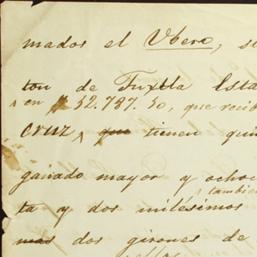 mados el Ubero, si
ton de Tuxtla Esta
en $ 52.787.50, que recib
cruz, que tienen quin
ganado mayor y ochoc
tambien
ta y dos milésimos
mas dos girones de